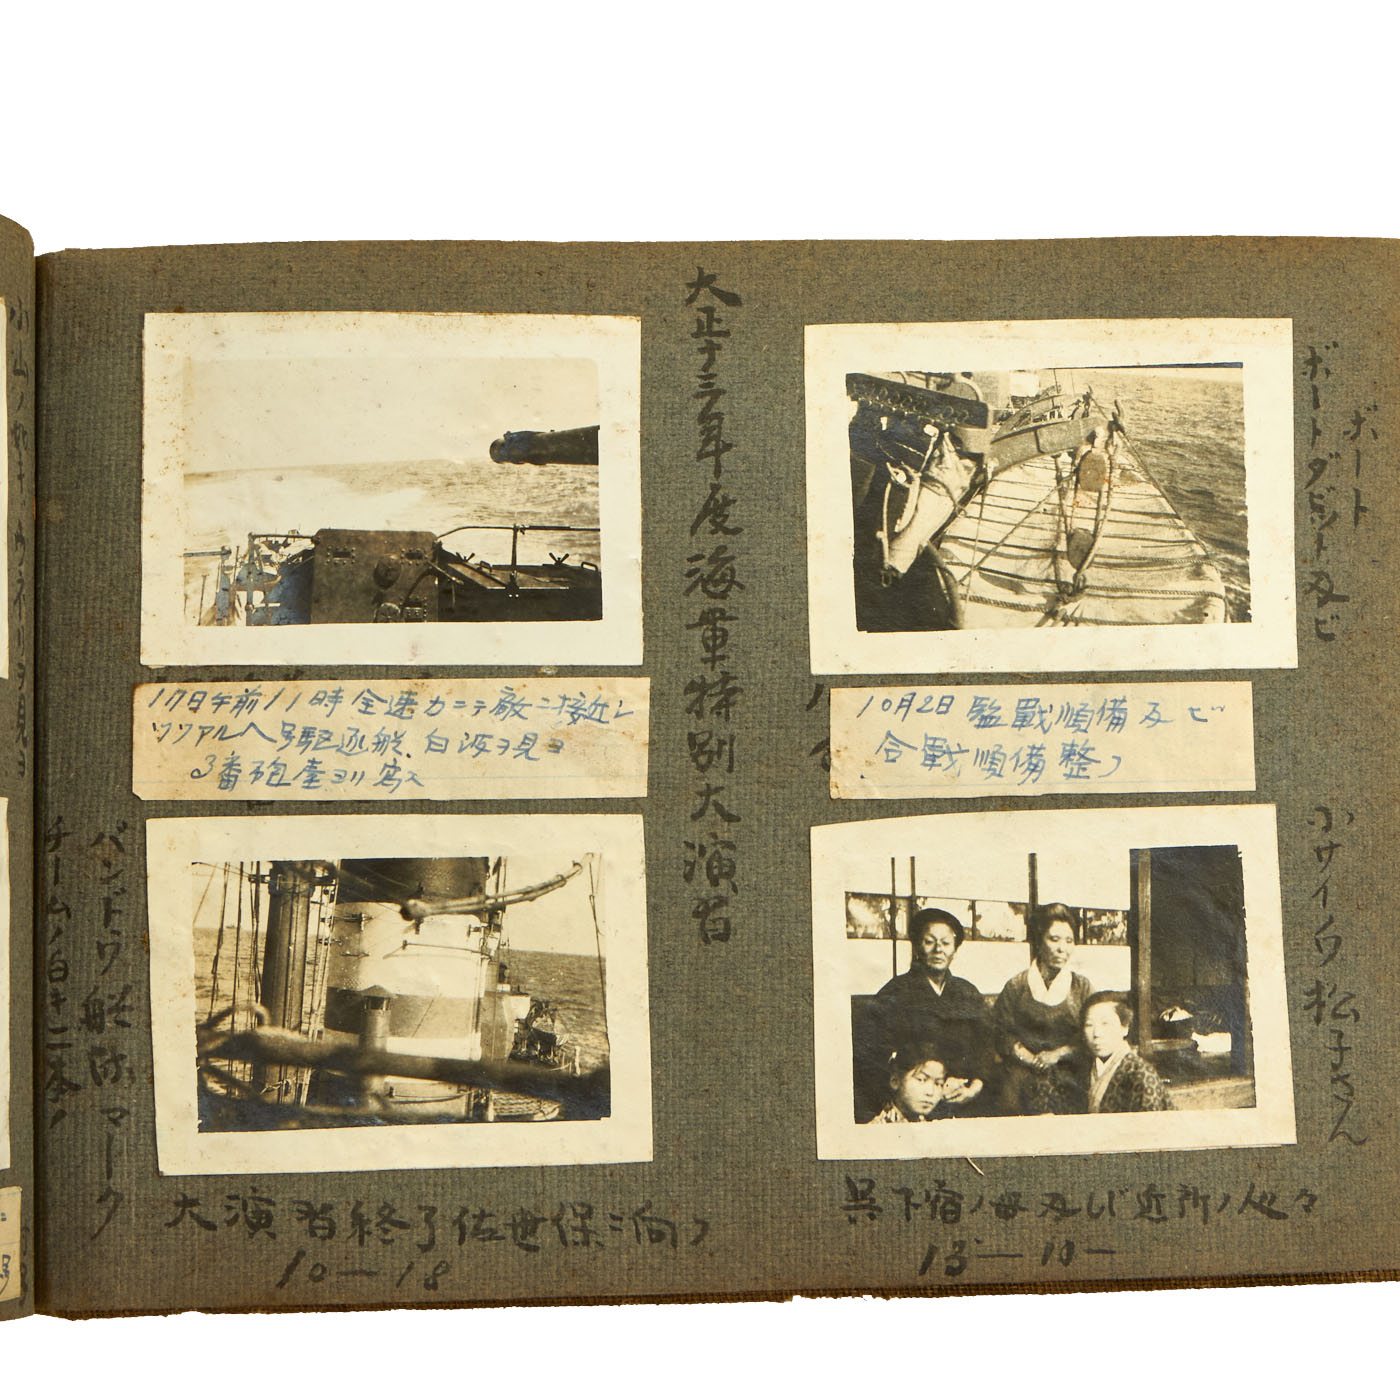 大正十三年度海軍特別大演習
ボート
ボートダビット及ビ
17日午前11時全速力ニテ敵ニ接近シ
ツツアルヘ号駆逐艦、白波ヲ見ヨ
3番砲台ヨリ写ス
10月2日 監戰順備及ビ
合戰順備整フ
バンドワ艦隊マーク
チームノ白キ二本ノ
小サイノワ松子さん
大演習終了佐世保ニ向フ
10—18
呉下宿ノ母及ビ近所ノ人々
13—10—